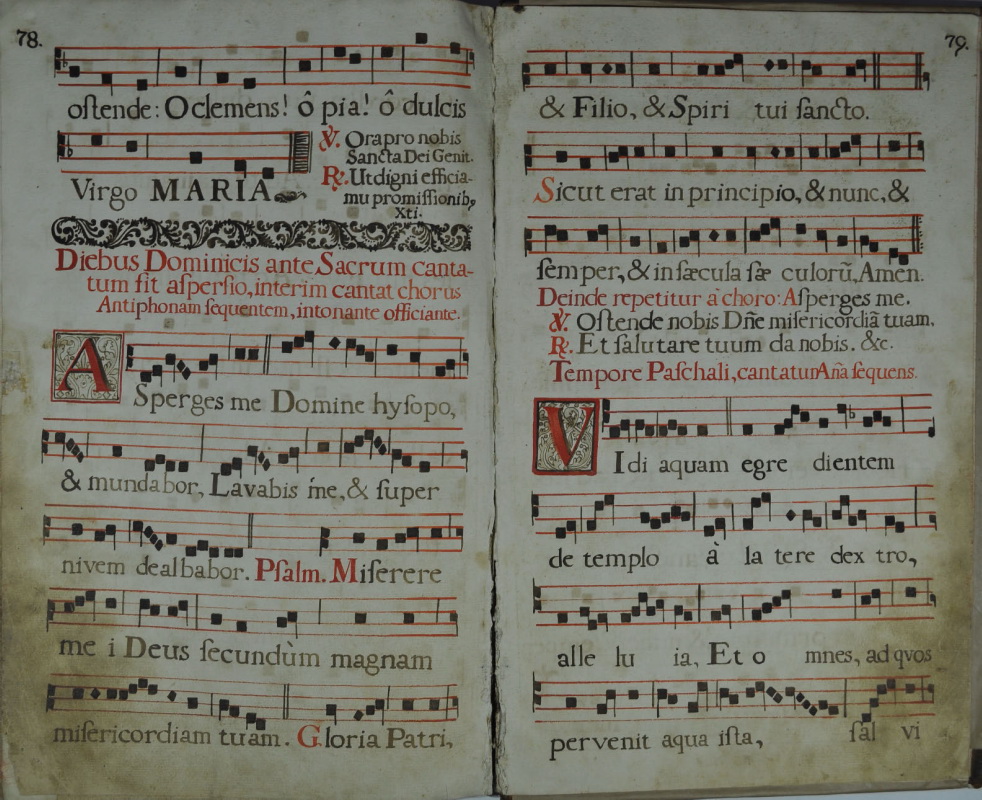 78.
oſtende: O clemens! ô pia! ô dulcis
Virgo MARIA
℣. Ora pro nobis
Sancta Dei Genit.
℟. Ut digni efficia-
mu promiſſionib,
Xti.
Diebus Dominicis ante Sacrum canta-
tum fit aſperſio, interim cantat chorus
Antiphonam ſequentem, intonante officiante.
ASperges me Domine hyſopo,
& mundabor, Lavabis me, & ſuper
nivem dealbabor. Pſalm. Miſerere
me i Deus ſecundùm magnam
miſericordiam tuam. Gloria Patri,
79.
& Filio, & Spiri tui ſancto.
Sicut erat in principio, & nunc, &
ſemper, & in ſæcula ſæ culorū, Amen.
Deinde repetitur à choro: Aſperges me.
℣. Oſtende nobis Dñe miſericordiā tuam.
℟. Et ſalutare tuum da nobis. &c.
Tempore Paſchali, cantatur Aña ſequens.
VIdi aquam egre dientem
de templo à la tere dex tro,
alle lu ia, Et o mnes, ad qvos
pervenit aqua iſta, ſal vi